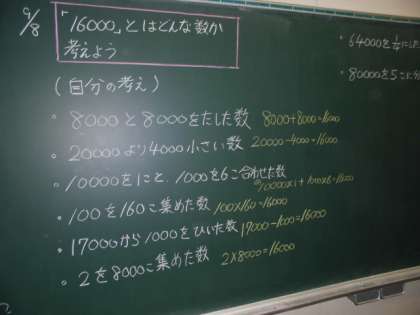 9/8
「16000」とはどんな数か
考えよう
(自分の考え)
・8000と8000をたした数 8000+8000=16000
・20000より4000小さい数 20000-4000=16000
・10000を1こと、1000を6こ合わせた数
10000×1+1000×6=16000
・100を160こ集めた数 100×160=16000
・17000から1000をひいた数 17000-1000=16000
・2を8000こ集めた数 2×8000=16000
・64000を
・80000を5こに